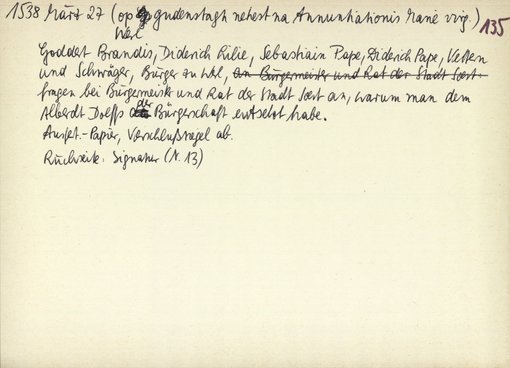 1538 März 27 (op gudenstagh nehest na Annuntiationis Marie virg.) 135
Werl
Goddert Brandis, Diderich Lilie, Sebastiain Pape, Diderich Pape, Vetten
und Schwäger, Bürger zu Werl, an Bürgermeister und Rat der Stadt Soest.
fragen bei Bürgermeister und Rat der Stadt Soest an, warum man dem
Alberdt Dolffs der Bürgerschaft entsetzt habe.
Ausfert.-Papier, Verschlußsiegel ab.
Rückseite: Signatur (N. 13)